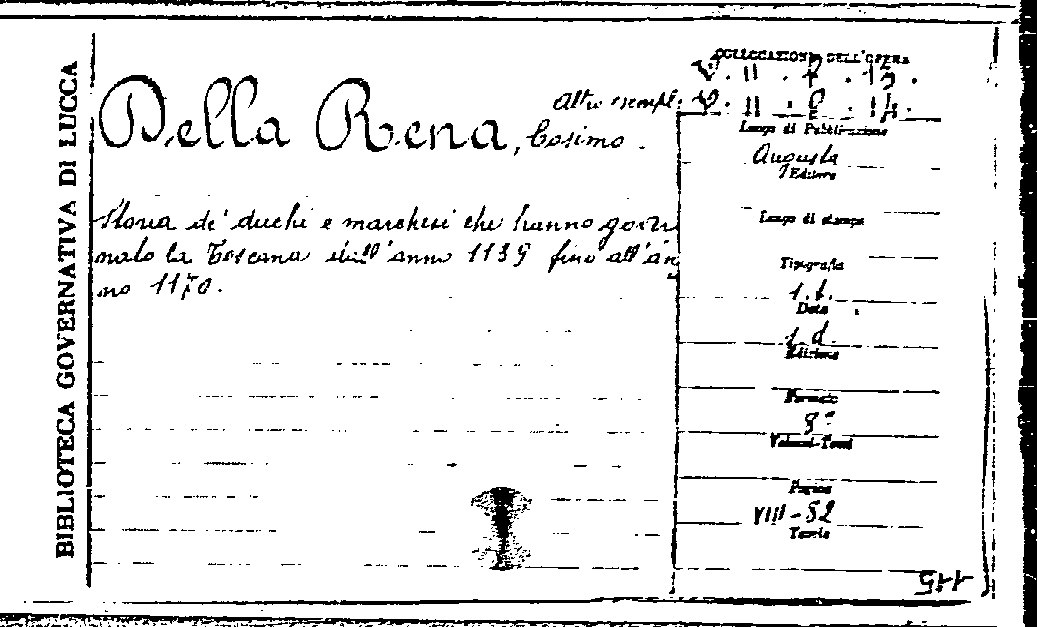 BIBLIOTECA GOVERNATIVA DI LUCCA
COLLOCAZIONE DELL'OPERA
Altro esempl.
Della Rena, Cosimo.
Luogo di Pubblicazione
Augusta
Editore
Storia de' duchi e marchesi che hanno gover
nato la Toscana dall'anno 1139 fino all'an
no 1170.
Luogo di stampa
Tipografia
s.t.
Data
s.d.
Edizione
Formato
8º
Volumi-Tomi
Pagine
VIII-52
Tavole